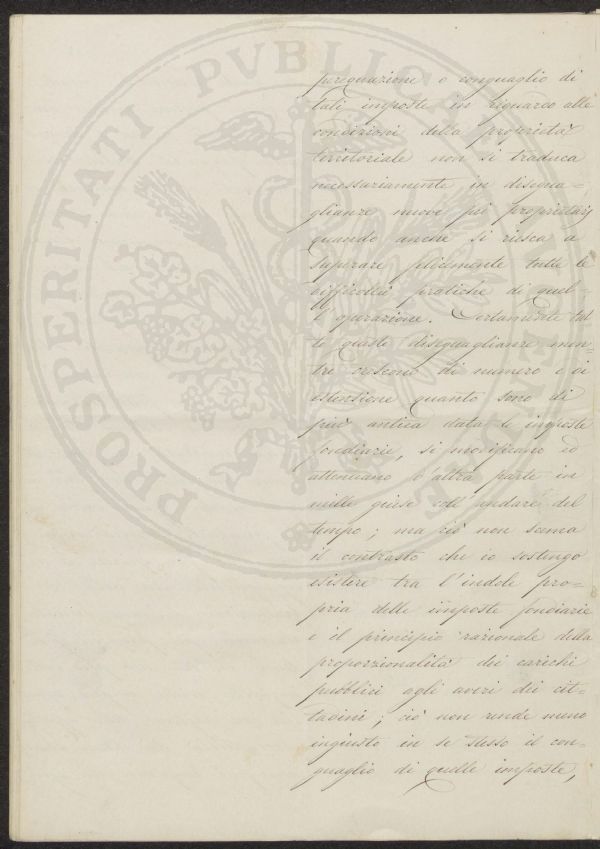 perequazione o conguaglio di
tali imposte in riguardo alle
condizioni della proprietà
territoriale non si traduca
necessariamente in disegua-
glianze nuove pei proprietarj
quando anche si riesca a
superare felicemente tutte le
difficoltà pratiche di quel-
l'operazione. Certamente tut-
te queste diseguaglianze men-
tre crescono di numero e di
estensione quanto sono di
più antica data le imposte
fondiarie, si modificano ed
attenuano d'altra parte in
mille guise coll'andare del
tempo; ma ciò non scema
il contrasto che io sostengo
esistere tra l'indole pro-
pria delle imposte fondiarie
e il principio razionale della
proporzionalità dei carichi
pubblici agli averi dei cit-
tadini; ciò non rende meno
ingiusto in se stesso il con-
guaglio di quelle imposte,
PROSPERITATI PVBLICAE